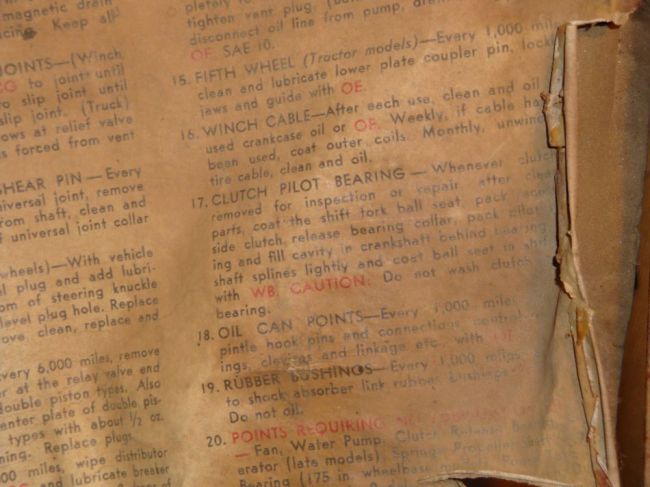 magnetic drain
cing. Keep all
JOINTS—(Winch,
CG to joint until
to slip joint until
slip joint. (Truck)
ows at relief valve
s forced from vent
SHEAR PIN—Every
niversal joint, remove
rom shaft, clean and
f universal joint collar
wheels)—With vehicle
l plug and add lubri-
om of steering knuckle
level plug hole. Replace
ove clean, replace and
very 6,000 miles, remove
er at the relay valve end
double piston types. Also
enter plate of double pis-
types with about ½ oz.
ning. Replace plugs.
00 miles, wipe distributor
and lubricate breaker
tighten vent plug.
disconnect oil line from pump,
OE SAE 10.
15. FIFTH WHEEL (Tractor models)—Every 1,000 miles
clean and lubricate lower plate coupler pin, lock
jaws and guide with OE.
16. WINCH CABLE—After each use, clean and oil
used crankcase oil or OE. Weekly, if cable has
been used, coat outer coils. Monthly, unwind
tire cable, clean and oil.
17. CLUTCH PILOT BEARING—Whenever clutch
removed for inspection or repair, after clean
parts, coat the shift fork ball seat, pack
side clutch release bearing collar, pack pilot
ing and fill cavity in crankshaft behind bearing
shaft splines lightly and coat ball seat in shift
with WB. CAUTION: Do not wash clutch
bearing.
18. OIL CAN POINTS—Every 1,000 miles
pintle hook pins and connections, control
ings, clevises and linkage etc., with OE.
19. RUBBER BUSHINGS—Every 1,000 miles
to shock absorber link rubber bushings
Do not oil.
20. POINTS REQUIRING NO
—Fan, Water Pump, Clutch Release
erator (late models), Springs, Propeller
Bearing (175 in. wheelbase